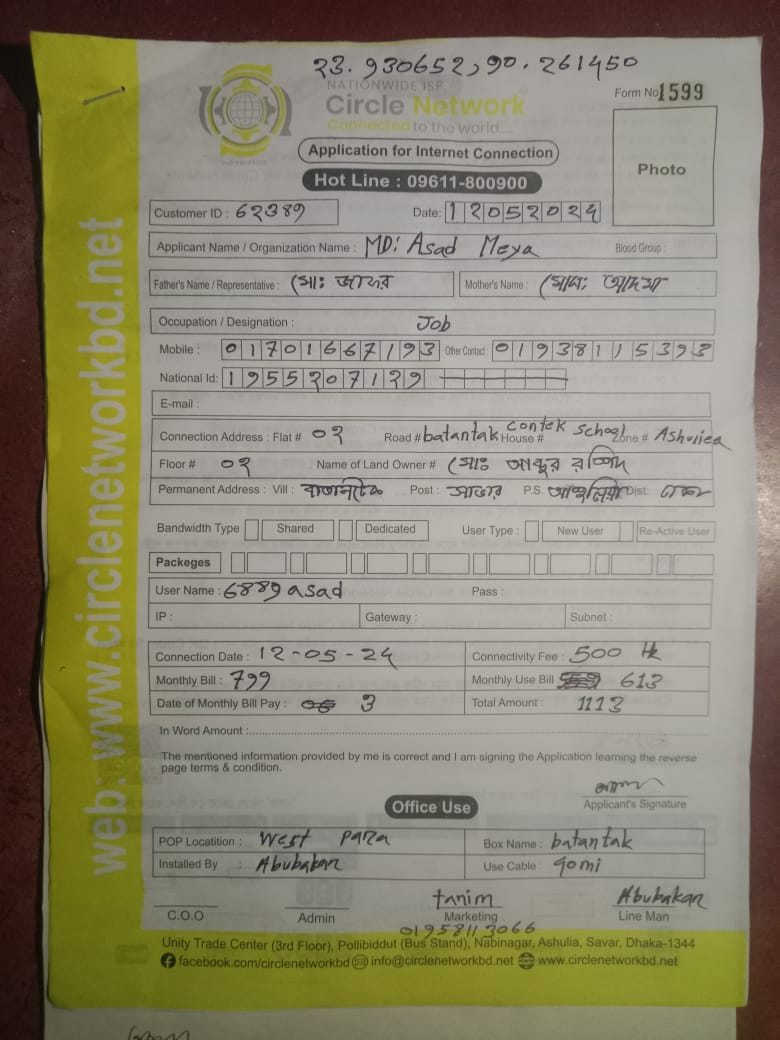 23.930652,90.261450
NATIONWIDE ISP.
Circle Network
Connected to the world...
Form No 1599
Application for Internet Connection
Photo
Hot Line : 09611-800900
Customer ID : 62389 Date: 12052024
Applicant Name / Organization Name : MD: Asad Meya Blood Group :
Father's Name / Representative : মোঃ জাফর Mother's Name : মোসাঃ
Occupation / Designation : Job
Mobile : 01701667193 Other Contact : 01938115393
National Id: 1955207129
E-mail :
Connection Address : Flat # 02 Road # batantak House # contek school Zone # Ashuliea
Floor # 02 Name of Land Owner # মোঃ আব্দুর রশিদ
Permanent Address : Vill : বাতানটেক Post : সাভার P.S. আশুলিয়া Dist: ঢাকা
Bandwidth Type Shared Dedicated User Type : New User Re-Active User
Packeges
User Name : 6889asad Pass :
IP : Gateway : Subnet :
Connection Date : 12-05-24 Connectivity Fee : 500 tk
Monthly Bill : 799 Monthly Use Bill 613
Date of Monthly Bill Pay : 3 Total Amount : 1113
In Word Amount :
The mentioned information provided by me is correct and I am signing the Application learning the reverse
page terms & condition.
Applicant's Signature
Office Use
POP Locatition : West para Box Name : batantak
Installed By : Abubakar Use Cable : 90mi
tanim Abubakar
C.O.O Admin Marketing Line Man
01958113066
Unity Trade Center (3rd Floor), Pollibiddut (Bus Stand), Nabinagar, Ashulia, Savar, Dhaka-1344
facebook.com/circlenetworkbd info@circlenetworkbd.net www.circlenetworkbd.net
web: www.circlenetworkbd.net